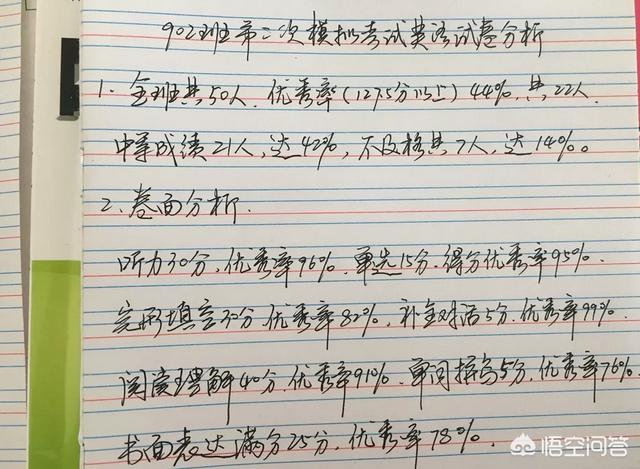 902班第二次模拟考试英语试卷分析
1. 全班共50人. 优秀率(127.5分以上)44%, 共22人.
中等成绩21人, 达42%, 不及格共7人, 达14%。
2. 卷面分析.
听力30分, 优秀率96%. 单选15分. 得分优秀率95%.
完形填空30分. 优秀率82%, 补全对话5分, 优秀率99%.
阅读理解40分, 优秀率91%. 单词拼写5分, 优秀率76%.
书面表达满分25分, 优秀率78%.
悟空问答